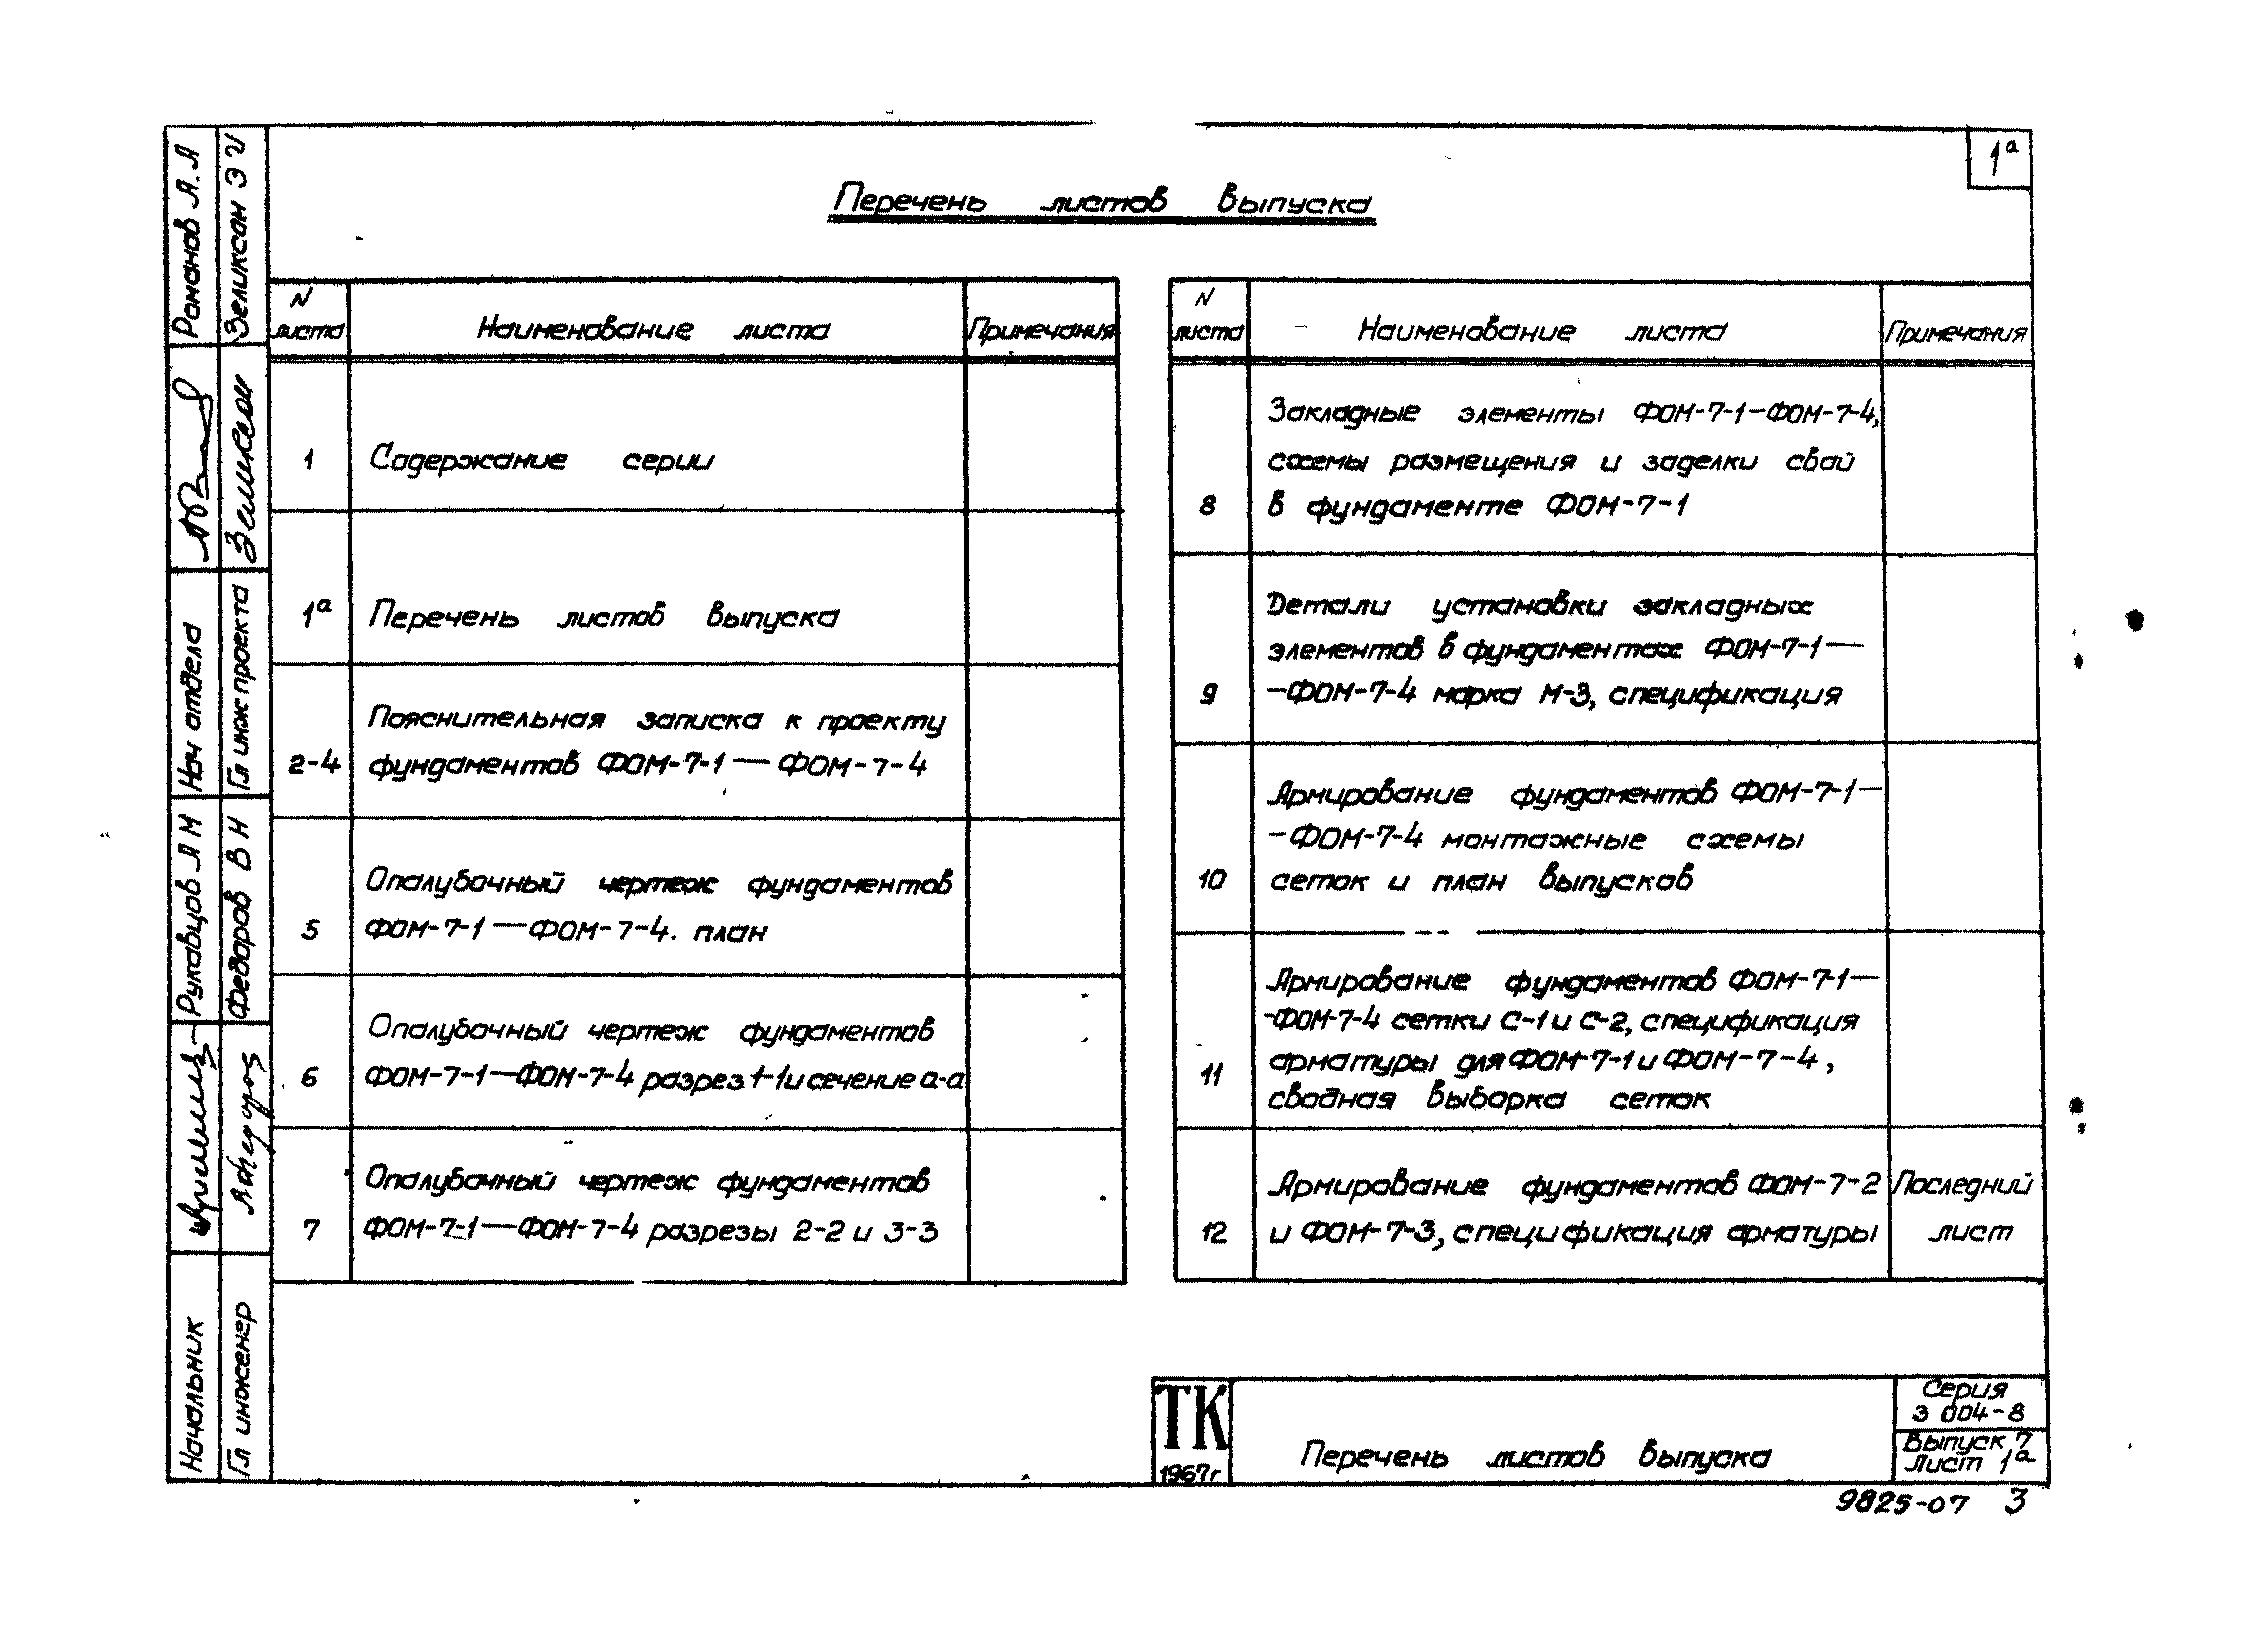 1а
Перечень листов выпуска
N листа
Наименование листа
Примечания
1
Содержание серии
1а
Перечень листов выпуска
2-4
Пояснительная записка к проекту
фундаментов ФОМ-7-1 — ФОМ-7-4
5
Опалубочный чертеж фундаментов
ФОМ-7-1 — ФОМ-7-4. план
6
Опалубочный чертеж фундаментов
ФОМ-7-1—ФОМ-7-4 разрез 1-1 и сечение а-а
7
Опалубочный чертеж фундаментов
ФОМ-7-1—ФОМ-7-4 разрезы 2-2 и 3-3
N листа
Наименование листа
Примечания
8
Закладные элементы ФОМ-7-1-ФОМ-7-4,
схемы размещения и заделки свай
в фундаменте ФОМ-7-1
9
Детали установки закладных
элементов в фундаментах ФОМ-7-1—
—ФОМ-7-4 марка М-3, спецификация
10
Армирование фундаментов ФОМ-7-1—
-ФОМ-7-4 монтажные схемы
сеток и план выпусков
11
Армирование фундаментов ФОМ-7-1—
-ФОМ-7-4 сетки С-1 и С-2, спецификация
арматуры для ФОМ-7-1 и ФОМ-7-4,
сводная выборка сеток
12
Армирование фундаментов ФОМ-7-2
и ФОМ-7-3, спецификация арматуры
Последний
лист
Начальник
Рукавцов Л М
Нач отдела
Романов А. А
Гл инженер
Федоров В Н
Гл инж проекта
Зеликсан Э И
ТК
1967г
Перечень листов выпуска
Серия
3 004-8
Выпуск 7
Лист 1а
9825-07 3